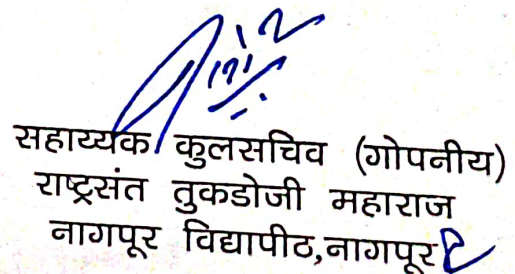 सहाय्यक कुलसचिव (गोपनीय)
राष्ट्रसंत तुकडोजी महाराज
नागपूर विद्यापीठ,नागपूर